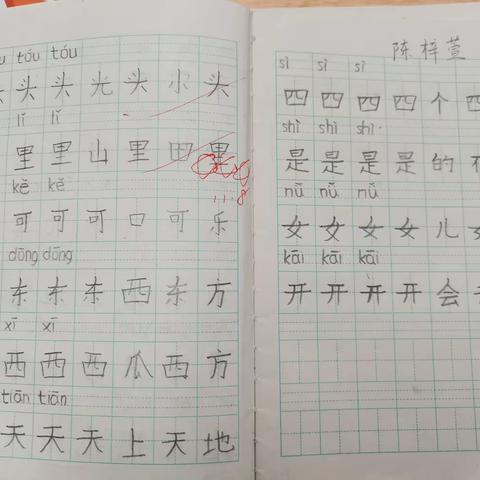 tóu tóu
头 头 光 头 小 头
lǐ lǐ
里 里 山 里 田 里
kě kě
可 可 可 口 可 乐
dōng dōng
东 东 东 西 东 方
xī xī
西 西 西 瓜 西 方
tiān tiān
天 天 天 上 天 地
11.8
陈梓萱
sì sì sì
四 四 四 四 个 四
shì shì shì
是 是 是 是 的
nǚ nǚ nǚ
女 女 女 女 儿
kāi kāi kāi
开 开 开 开 会